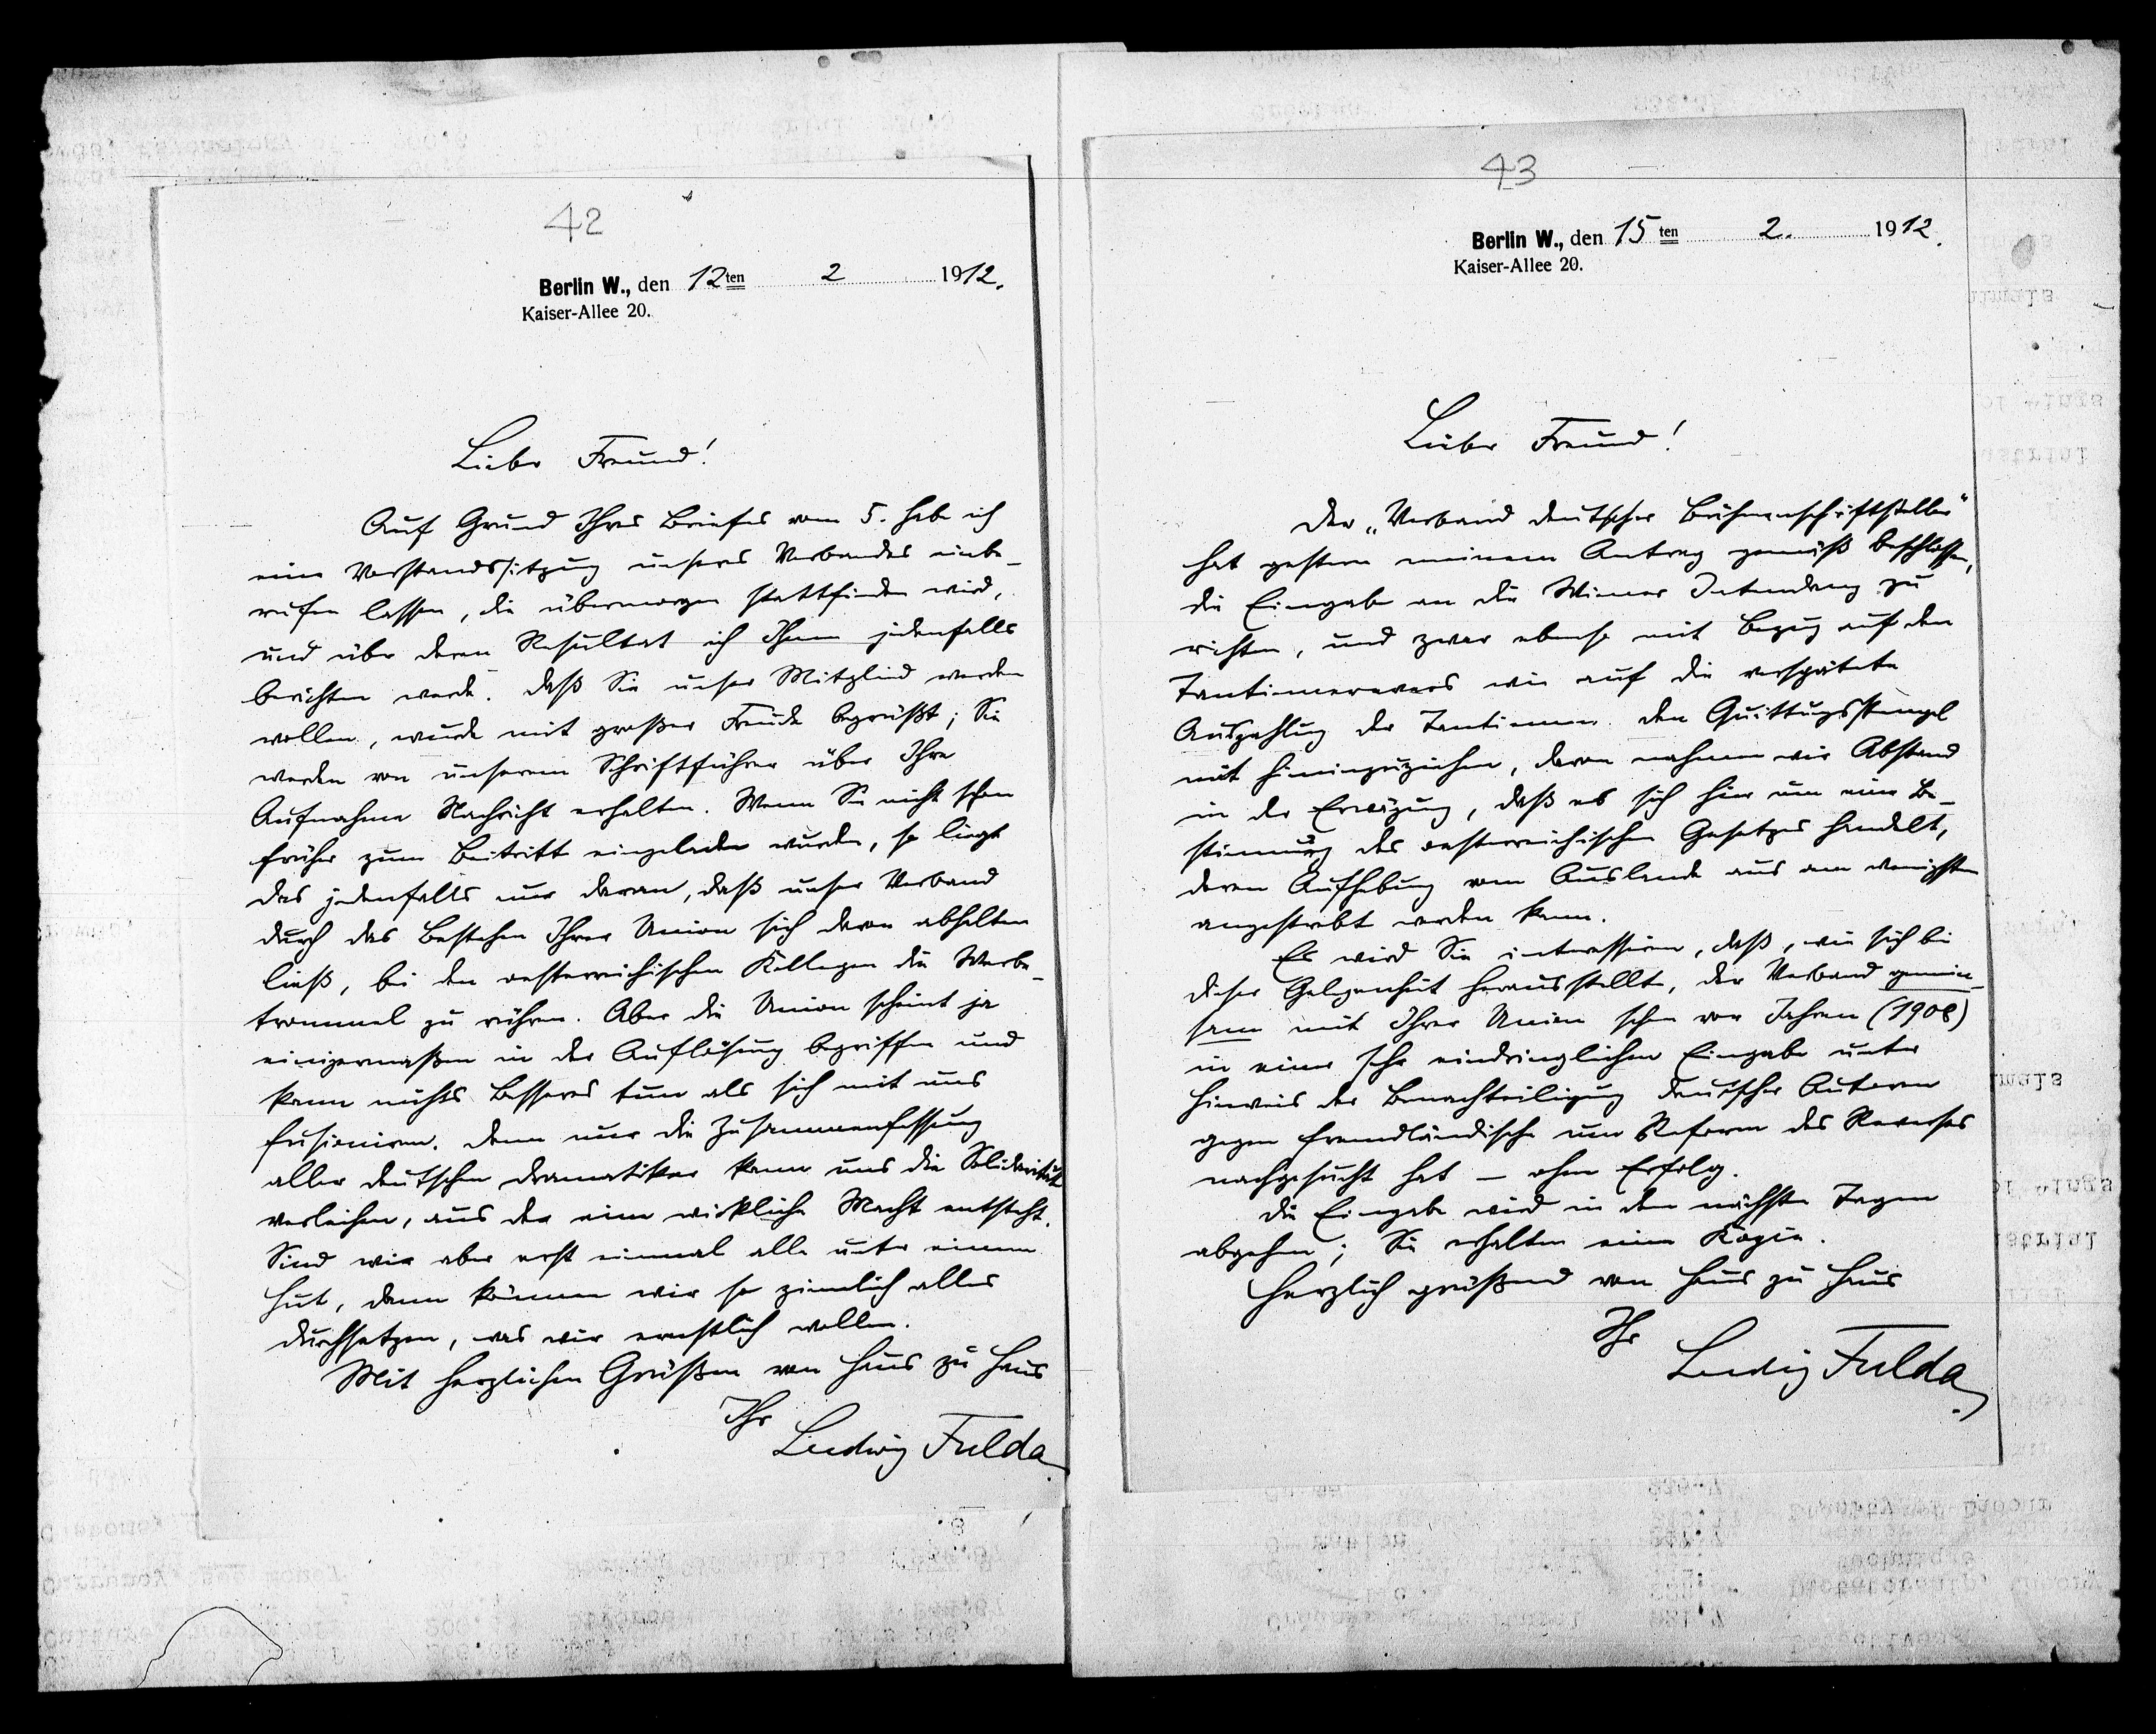 42
Berlin W., den 12ten 2 1912.
Kaiser-Allee 20.
Lieber Freund!
Auf Grund Ihres Briefes vom 5. habe ich
eine Vorstandssitzung unseres Verbandes einbe-
rufen lassen, die übermorgen stattfinden wird,
und über deren Resultat ich Ihnen jedenfalls
berichten werde. Daß Sie unser Mitglied werden
wollen, wurde mit großer Freude begrüßt; Sie
werden von unserem Schriftführer über Ihre
Aufnahme Nachricht erhalten. Wenn Sie nicht schon
früher zum Beitritt eingeladen wurden, so liegt
das jedenfalls nur daran, daß unser Verband
durch das Bestehen Ihrer Union sich davon abhalten
ließ, bei den oesterreichischen Kollegen die Werbe-
trommel zu rühren. Aber die Union scheint ja
einigermaßen in der Auflösung begriffen und
kann nichts Besseres tun als sich mit uns
fusioniren. Denn nur die Zusammenfassung
aller deutschen Dramatiker kann uns die Solidarität
verleihen, aus der eine wirkliche Macht entsteht.
Sind wir aber erst einmal alle unter einem
Hut, dann können wir so ziemlich alles
durchsetzen, was wir ernstlich wollen.
Mit herzlichen Grüßen von Haus zu Haus
Ihr
Ludwig Fulda.
43
Berlin W., den 15ten 2. 1912.
Kaiser-Allee 20.
Lieber Freund!
Der „Verband deutscher Bühnenschriftsteller"
hat gestern meinem Antrag gemäß beschlossen,
die Eingabe an die Wiener Intendanz zu
richten, und zwar ebenso mit Bezug auf den
Tantiemerevers wie auf die verspätete
Auszahlung der Tantiemen. Den Quittungsstempel
mit hineinzuziehen, davon nahmen wir Abstand
in der Erwägung, daß es sich hier um eine Be-
stimmung des oesterreichischen Gesetzes handelt,
deren Aufhebung vom Auslande aus am wenigsten
angestrebt werden kann.
Es wird Sie interessiren, daß, wie sich bei
dieser Gelegenheit herausstellte, der Verband gemein-
sam mit Ihrer Union schon vor Jahren (1908)
in einer sehr eindringlichen Eingabe unter
Hinweis der Benachteiligung deutscher Autoren
gegen fremdländische um Reform des Reverses
nachgesucht hat – ohne Erfolg.
Die Eingabe wird in den nächsten Tagen
abgehen; Sie erhalten eine Kopie.
Herzlich grüßend von Haus zu Haus
Ihr
Ludwig Fulda.